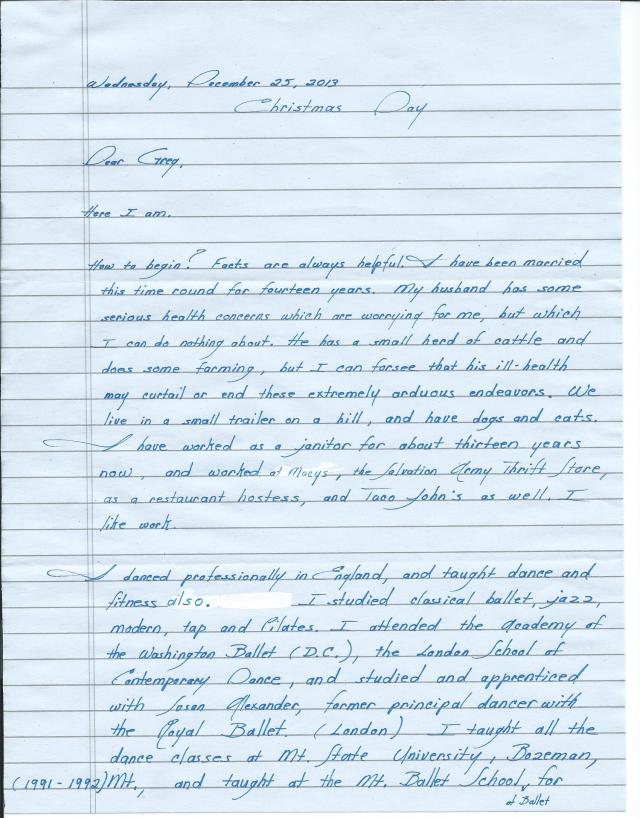 Wednesday, December 25, 2013
Christmas Day
Dear Greg,
Here I am.
How to begin? Facts are always helpful. I have been married
this time round for fourteen years. My husband has some
serious health concerns which are worrying for me, but which
I can do nothing about. He has a small herd of cattle and
does some farming, but I can forsee that his ill-health
may curtail or end these extremely arduous endeavors. We
live in a small trailer on a hill, and have dogs and cats.
I have worked as a janitor for about thirteen years
now, and worked at Macys, the Salvation Army Thrift Store,
as a restaurant hostess, and Taco John's as well. I
like work.
I danced professionally in England, and taught dance and
fitness also. I studied classical ballet, jazz,
modern, tap and Pilates. I attended the Academy of
the Washington Ballet (D.C.), the London School of
Contemporary Dance, and studied and apprenticed
with Susan Alexander, former principal dancer with
the Royal Ballet. (London) I taught all the
dance classes at Mt. State University, Bozeman,
(1991-1992) Mt., and taught at the Mt. Ballet School, for
of Ballet